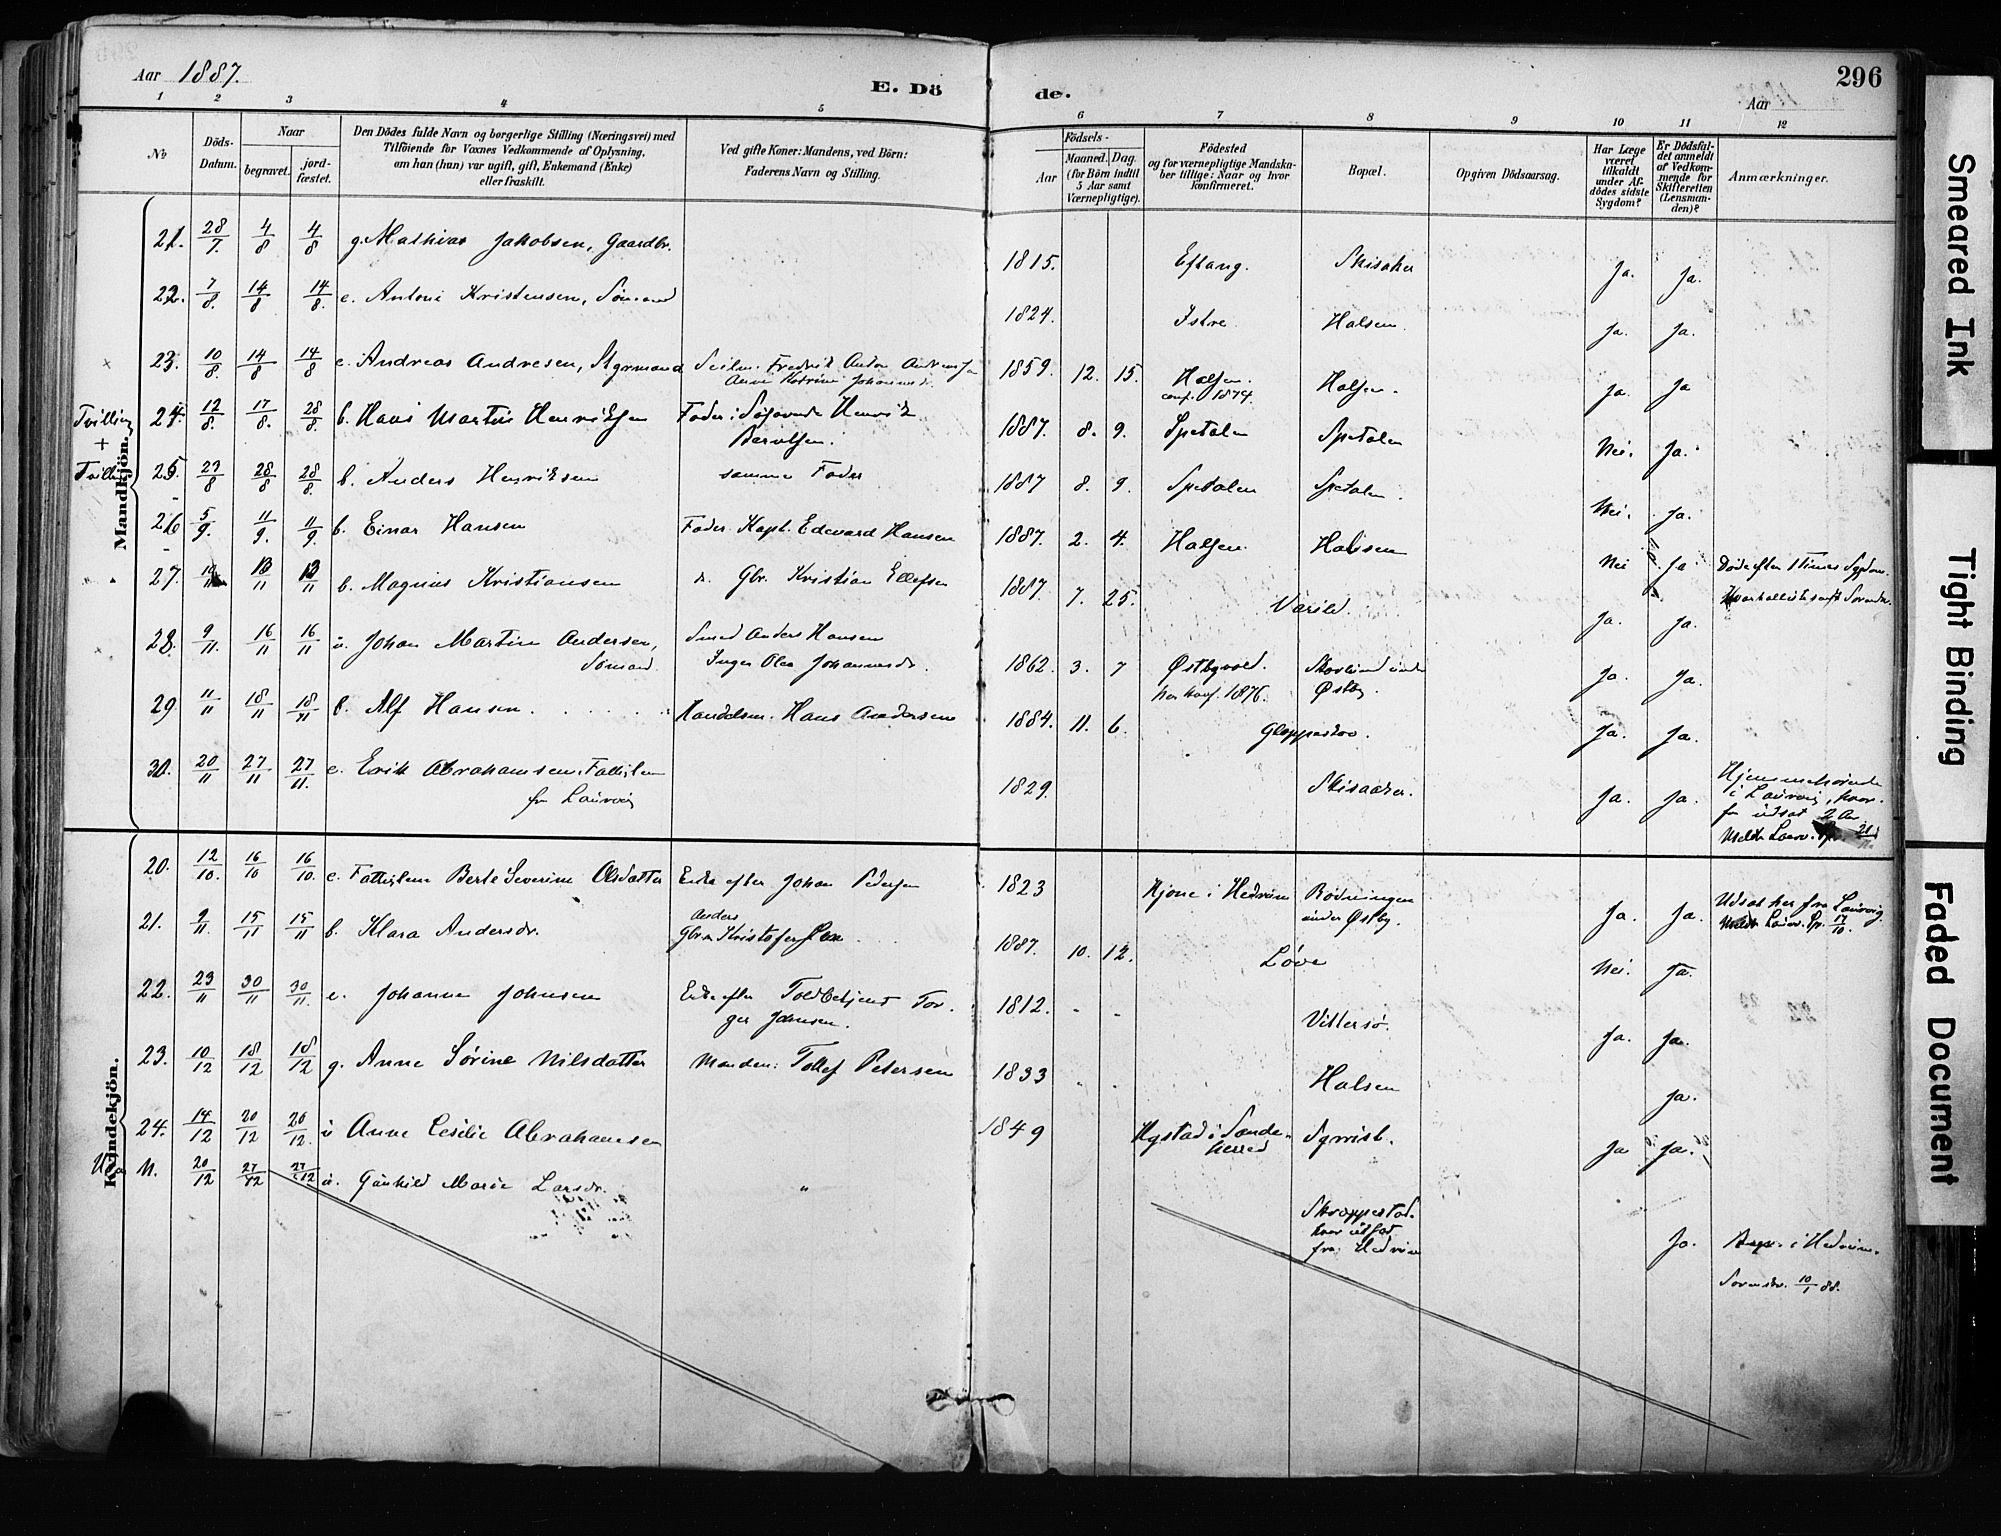 Aar 1887.
E. Dö
de.
Aar
296
1 2 3 4 5 6 7 8 9 10 11 12
No
Döds-
Datum.
Naar
begravet.
jord-
fæstet.
Den Dödes fulde Navn og borgerlige Stilling (Næringsvei) med
Tilföiende for Voxnes Vedkommende af Oplysning,
om han (hun) var ugift, gift, Enkemand (Enke)
eller fraskilt.
Ved gifte Koner: Mandens, ved Börn:
Faderens Navn og Stilling.
Födsels-
Aar
Maaned.
Dag.
(for Börn indtil
5 Aar samt
Værnepligtige).
Födested
og for værnepligtige Mandska-
ber tillige: Naar og hvor
konfirmeret.
Bopæl.
Opgiven Dödsaarsag.
Har Læge
været
tilkaldt
under Af-
dödes sidste
Sygdom?
Er Dödsfal-
det anmeldt
af Vedkom-
mende for
Skifteretten
(Lensman-
den)?
Anmærkninger.
Mandkjön.
21. 28/7 4/8 4/8 g. Mathias Jakobsen, Gaardbr. 1815. Eftang. Skisaker Ja. Ja.
22. 7/8. 14/8 14/8. e. Antoni Kristensen, Sömand 1824. Istre. Halsen. Ja. Ja.
23. 10/8. 14/8 14/8 e. Andreas Andresen, Styrmand Seilm. Fredrik Anton Andresen 1859. 12. 15. Halsen. Halsen. Ja. Ja
conf. 1874.
Tvilling
+
24. 12/8. 17/8. 28/8. b. Hans Martin Henriksen Fader: Henrik 1887. 8. 9. Spetalen Spetalen Nei. Ja.
Bärulfsen.
Tvilling
25. 23/8 28/8 28/8. b. Anders Henriksen samme Fader 1887 8. 9. Spetalen Spetalen. Nei. Ja.
26 5/9. 11/9. 11/9. b. Einar Hansen Fader Kapt. Edevard Hansen 1887. 2. 4. Halsen. Halsen Nei Ja
27. 10/11 13/11 13/11 b. Magnus Kristiansen Gbr. Kristian Ellefsen 1887 7. 25. Varild. Ja. Ja.
28. 9/11. 16/11 16/11 u. Johan Martin Andersen, Smed Anders Hansen 1862. 3. 7 Østbyvold. Ja. Ja.
Sömand. Inger Olea Johannesdr. konf. 1876. Østby.
29 11/11 18/11 18/11 b. Alf Hansen. Handelsm. Hans Andersen 1884. 11. 6. Gloppestov. Ja. Ja.
30. 20/11 27/11 27/11. e. Erik Abrahamsen, Fattiglem 1829. Skisaker. Ja. Ja. Hjemmehörende
fra Laurvig i Laurvig, hvor-
fra udsat 2 Aar
Kvindekjön.
20. 12/10. 16/10 16/10. e. Fattiglem Berte Severine Olsdatter Enke efter Johan Pedersen 1823 Kjone i Hedrum Rødningen Ja. Ja. Udsat her fra Laurvig.
under Østby. Meldt Laurv. Sp. 17/10.
21. 9/11. 15/11 15/11 b. Klara Andersdr. Anders
Gbr. Kristofersen 1887. 10. 12. Løve Nei. Ja.
22. 23/11 30/11 30/11. e. Johanne Johnsen Enke efter Toldbetjent Tor- 1812. - - Vittersö. Ja. Ja.
ger Johnsen.
23. 10/12 18/12 18/12 g. Anne Sörine Nilsdatter Manden: Tollef Petersen 1833 Halsen Ja.
24. 14/12 20/12 20/12. u Anne Cesilie Abrahamsen 1849 Nystad i Sande- Ja Ja.
herred
N. 20/12 27/12 27/12 u. Gunhild Marie Larsdr. " Skroppestad. Ja. i Hedrum.
hvor udsat
fra Hedrum
10/1 88.
Smeared Ink
Tight Binding
Faded Document